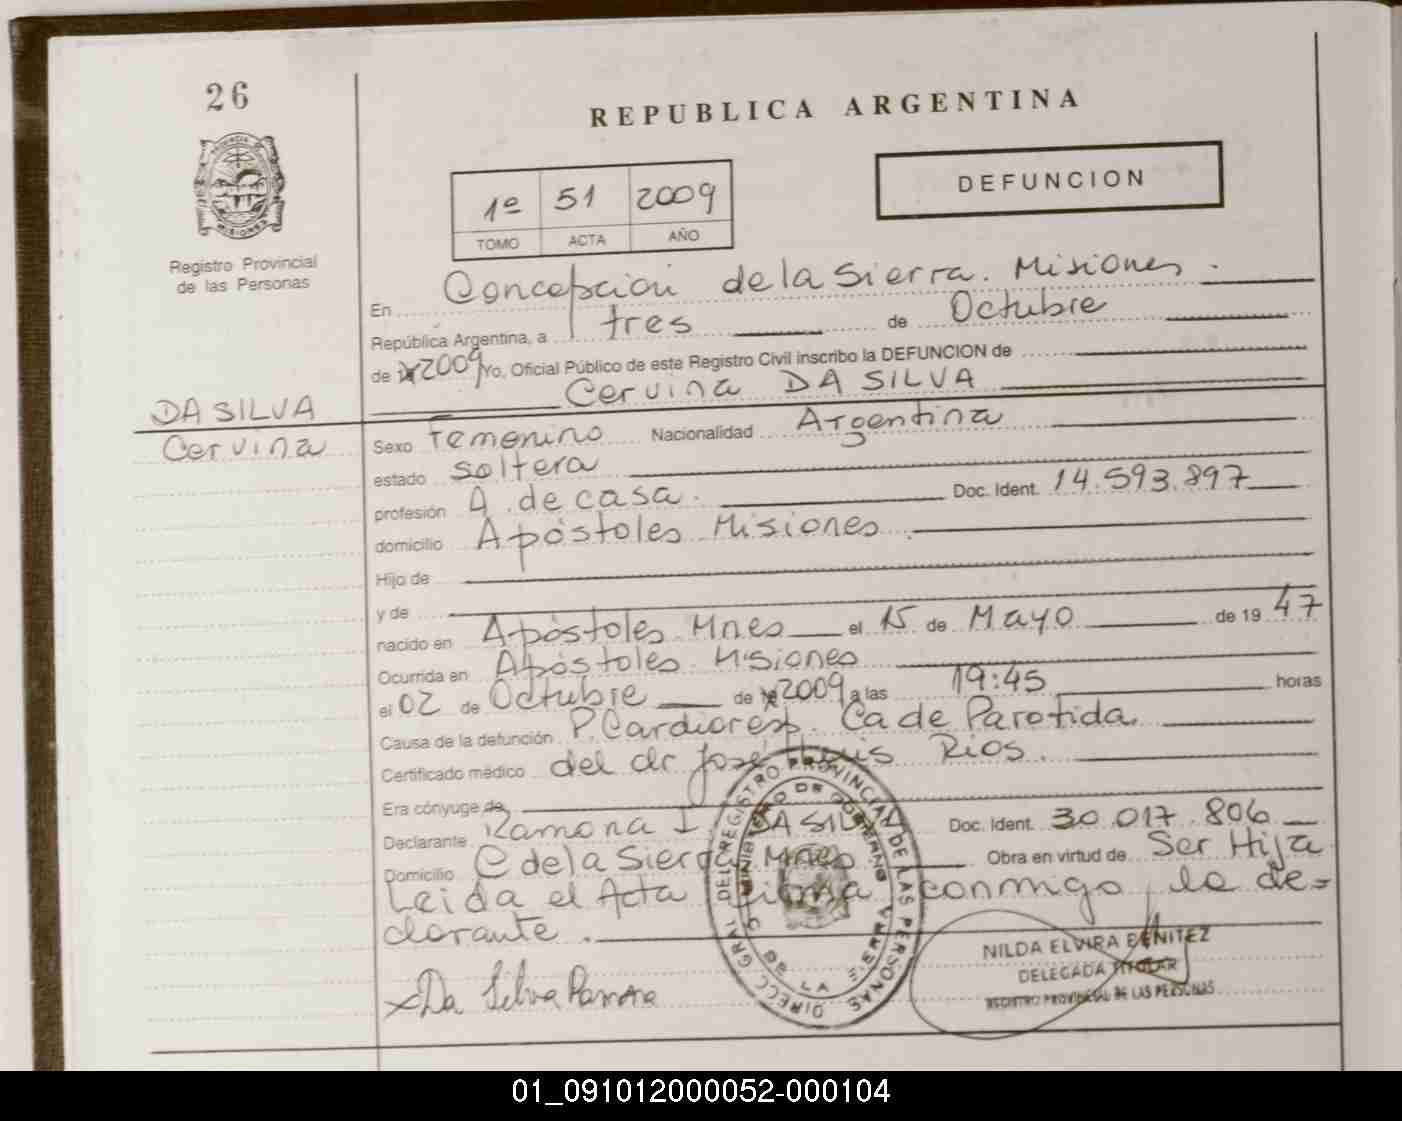 26
REPUBLICA ARGENTINA
PROVINCIA DE
MISIONES
Registro Provincial
de las Personas
1º 51 2009
TOMO ACTA AÑO
DEFUNCION
En Concepción de la Sierra. Misiones.
República Argentina, a tres de Octubre
de 2009 Yo, Oficial Público de este Registro Civil inscribo la DEFUNCION de
Cervina DA SILVA
DA SILVA
Cervina
Sexo Femenino Nacionalidad Argentina
estado soltera
profesión A. de casa. Doc. Ident. 14.593.897
domicilio Apóstoles Misiones
Hijo de
y de
nacido en Apóstoles Mnes el 15 de Mayo de 1947
Ocurrida en Apóstoles Misiones
el 02 de Octubre de 2009 a las 19:45 horas
Causa de la defunción P. Cardioresp. Ca de Parotida.
Certificado médico del dr José Luis Rios.
Era cónyuge de
Declarante Ramona I. DA SILVA Doc. Ident. 30.017.806
Domicilio C de la Sierra Mnes Obra en virtud de Ser Hija
Leida el Acta firma conmigo, la de=
clarante.
x Da Silva Ramona
DIRECC. GRAL. DEL REGISTRO PROVINCIAL DE LAS PERSONAS
MINISTERIO DE GOBIERNO
NILDA ELVIRA BENITEZ
DELEGADA TITULAR
REGISTRO PROVINCIAL DE LAS PERSONAS
01_091012000052-000104